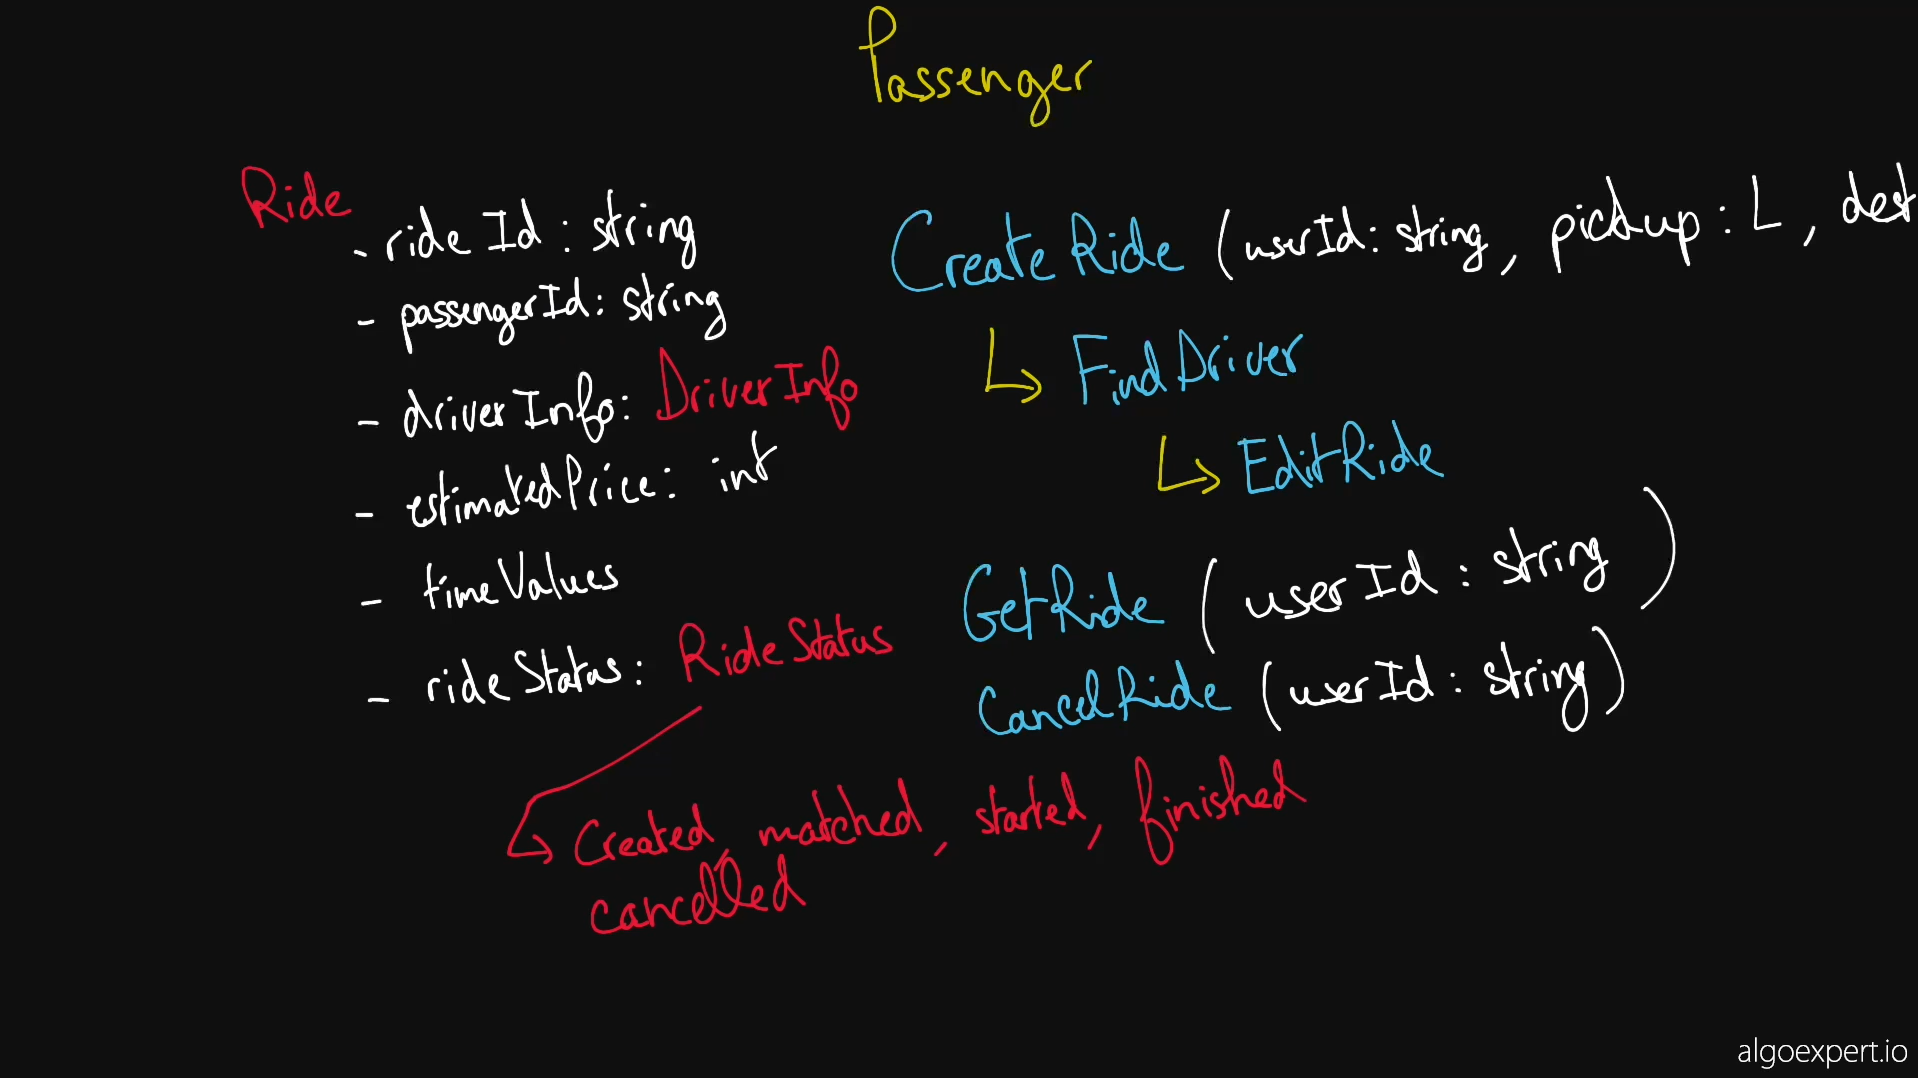 Passenger
Ride
- rideId : string
- passengerId : string
- driverInfo : DriverInfo
- estimatedPrice : int
- timeValues
- rideStatus : RideStatus
↳ Created, matched, started, finished
cancelled
CreateRide (userId : string, pickup : L, dest
↳ FindDriver
↳ EditRide
GetRide (userId : string)
CancelRide (userId : string)
algoexpert.io